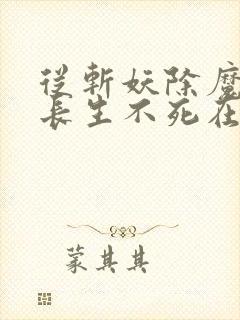 從斬妖除魔
長生不死在
蒙其其